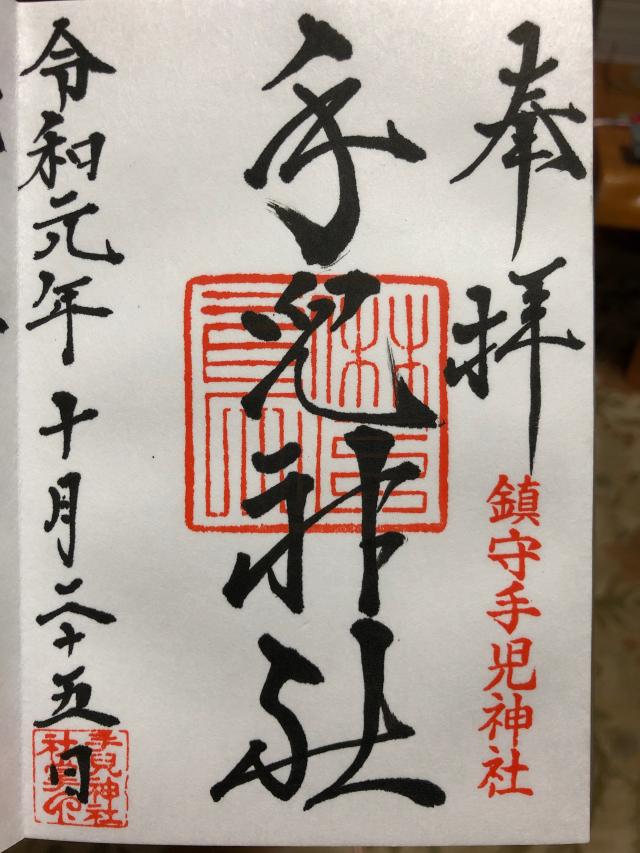 奉拝
鎮守手児神社
手兒神社
令和元年十月二十五日
手兒神社